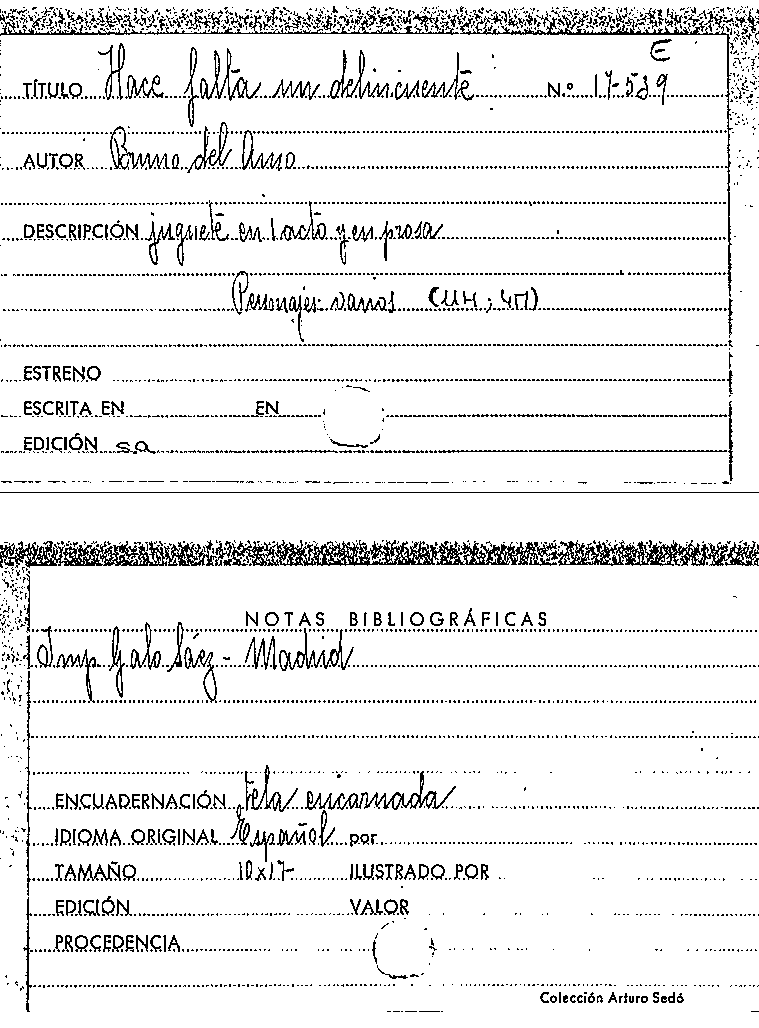 E
TÍTULO Hace falta un delincuente N.º 17-539
AUTOR Bruno del Amo
DESCRIPCIÓN juguete en 1 acto y en prosa
Personajes varios (4H; 4M)
ESTRENO
ESCRITA EN EN
EDICIÓN sa
NOTAS BIBLIOGRÁFICAS
Imp Galo Sáez - Madrid
ENCUADERNACIÓN tela encarnada
IDIOMA ORIGINAL Español por
TAMAÑO 10x17 ILUSTRADO POR
EDICIÓN VALOR
PROCEDENCIA
Colección Arturo Sedó